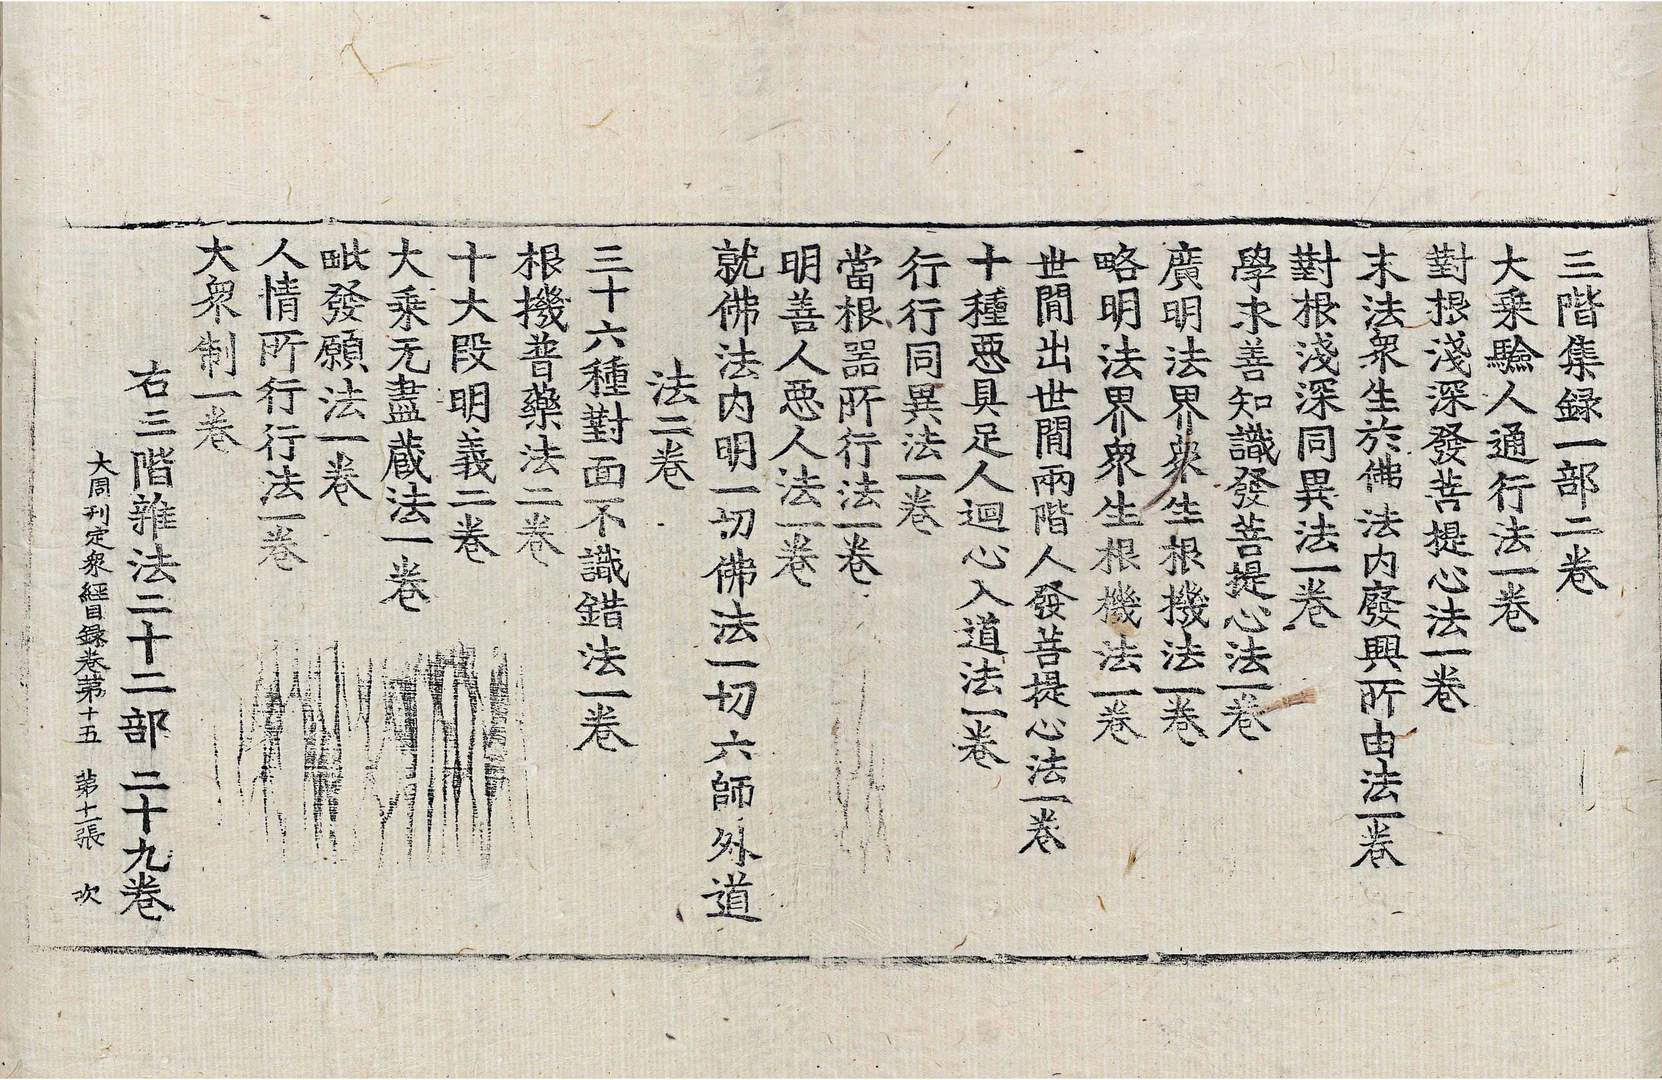 三階集録一部二卷
大乘驗人通行法一卷
對根淺深發菩提心法一卷
末法衆生於佛法内廢興所由法一卷
對根淺深同異法一卷
學求善知識發菩提心法一卷
廣明法界衆生根撥法一卷
略明法界衆生根機法一卷
世間出世間兩階人發菩提心法一卷
十種惡具足人迴心入道法一卷
行行同異法一卷
當根器所行法一卷
明善人惡人法一卷
就佛法内明一切佛法一切六師外道
法二卷
三十六種對面不識錯法一卷
根撥普藥法二卷
十大段明義二卷
大乘无盡蔵法一卷
毗發願法一卷
人情所行行法一卷
大衆制一卷
右三階雜法二十二部 二十九卷
大周刊定衆經目録卷第十五 第十一張 次